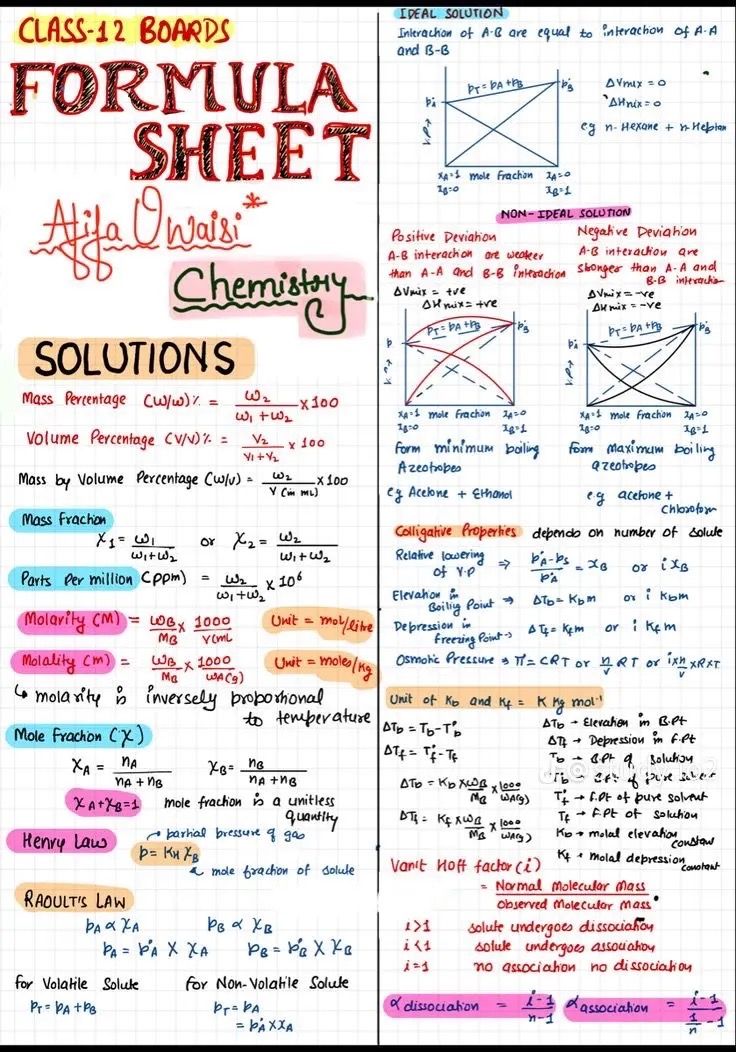 CLASS-12 BOARDS
FORMULA
SHEET
Afifa Owaisi*
Chemistry
SOLUTIONS
Mass Percentage (w/w)% = w₂/(w₁+w₂) × 100
Volume Percentage (V/V)% = V₂/(V₁+V₂) × 100
Mass by Volume Percentage (w/v) = w₂/(V (in mL)) × 100
Mass Fraction
χ₁ = w₁/(w₁+w₂) or χ₂ = w₂/(w₁+w₂)
Parts Per million (ppm) = w₂/(w₁+w₂) × 10⁶
Molarity (M) = wB/MB × 1000/V(mL Unit = mol/litre
Molality (m) = wB/MB × 1000/wA(g) Unit = moles/kg
↳ molarity is inversely proportional
to temperature
Mole Fraction (χ)
χA = nA/(nA+nB) χB = nB/(nA+nB)
χA+χB=1 mole fraction is a unitless
quantity
Henry Law
partial pressure of gas
p = KH χB
mole fraction of solute
RAOULT'S LAW
pA ∝ χA pB ∝ χB
pA = p°A × χA pB = p°B × χB
for Volatile Solute for Non-Volatile Solute
pT = pA+pB pT = pA
= p°A × χA
IDEAL SOLUTION
Interaction of A-B are equal to interaction of A-A
and B-B
pT = pA+pB
p°A
p°B
V.P→
ΔVmix = 0
ΔHmix = 0
eg n-Hexane + n-Heptan
xA=1 mole fraction xA=0
xB=0 xB=1
NON-IDEAL SOLUTION
Positive Deviation
A-B interaction are weaker
than A-A and B-B interaction
ΔVmix = +ve
ΔHmix = +ve
pT = pA+pB
p
p°B
V.P→
xA=1 mole fraction xA=0
xB=0 xB=1
form minimum boiling
Azeotropes
eg Acetone + Ethanol
Negative Deviation
A-B interaction are
stronger than A-A and
B-B interaction
ΔVmix = -ve
ΔHmix = -ve
pT = pA+pB
p°A
p°B
V.P→
xA=1 mole fraction xA=0
xB=0 xB=1
form Maximum boiling
azeotropes
eg acetone +
Chloroform
Colligative Properties depends on number of solute
Relative lowering
of V.P ⇒ (p°A-ps)/p°A = xB or i xB
Elevation in
Boiling Point ⇒ ΔTb = Kbm or i Kbm
Depression in
freezing Point ⇒ ΔTf = Kfm or i Kfm
Osmotic Pressure ⇒ π = CRT or n/v RT or i×n/v × R×T
Unit of Kb and Kf = K Kg mol⁻¹
ΔTb = Tb - T°b
ΔTf = T°f - Tf
ΔTb = Kb × wB/MB × 1000/wA(g)
ΔTf = Kf × wB/MB × 1000/wA(g)
ΔTb → Elevation in B.Pt
ΔTf → Depression in F.Pt
Tb → B.Pt of solution
T°b → B.Pt of pure solvent
T°f → F.Pt of pure solvent
Tf → F.Pt of solution
Kb → molal elevation
constant
Kf → molal depression
constant
Vanit Hoff factor (i)
= Normal Molecular Mass
Observed Molecular Mass
i>1 solute undergoes dissociation
i<1 solute undergoes association
i=1 no association no dissociation
α dissociation = (i-1)/(n-1) α association = (i-1)/(1/n - 1)